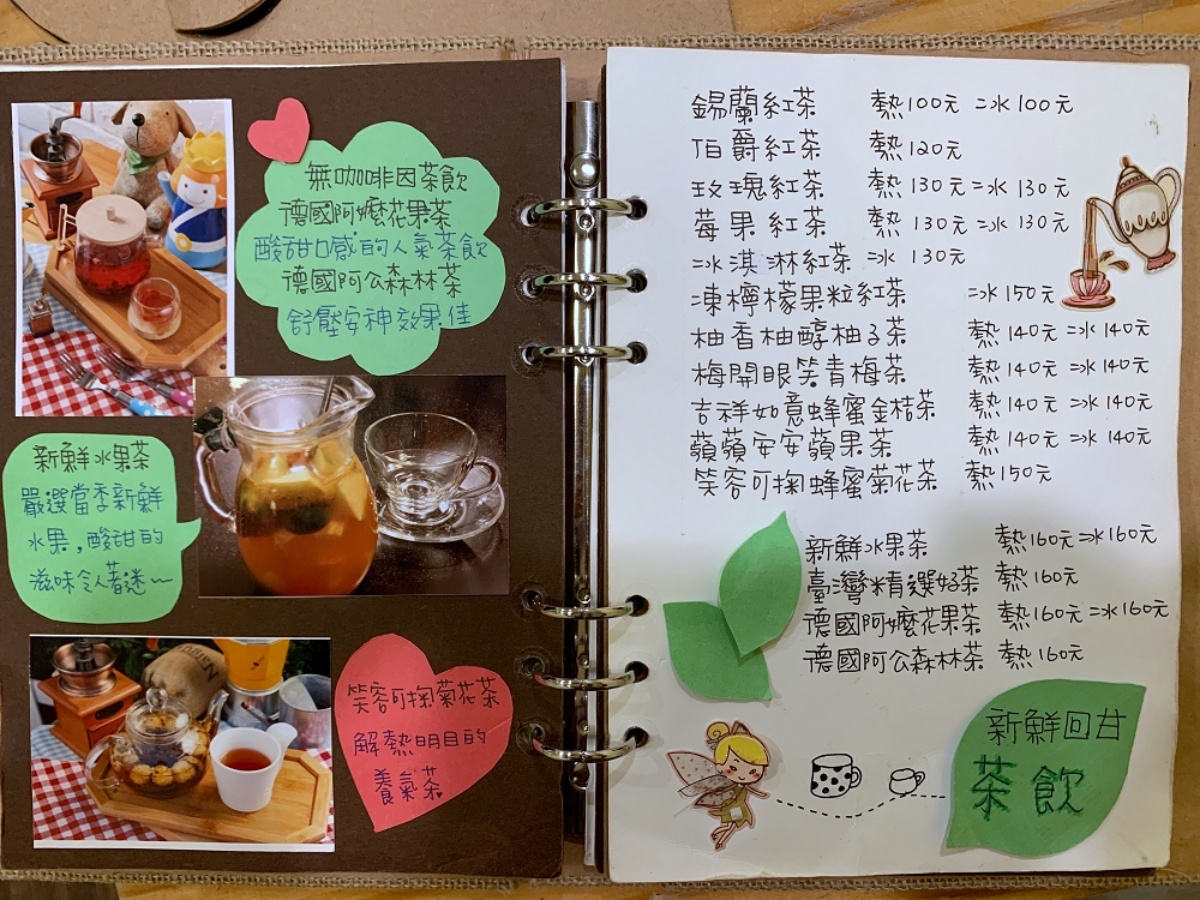 無咖啡因茶飲
德國阿嬤花果茶
酸甜口感的人氣茶飲
德國阿公森林茶
舒壓安神效果佳
新鮮水果茶
嚴選當季新鮮
水果,酸甜的
滋味令人著迷~
笑容可掬菊花茶
解熱明目的
養氣茶
錫蘭紅茶 熱100元 冰100元
伯爵紅茶 熱120元
玫瑰紅茶 熱130元 冰130元
莓果紅茶 熱130元 冰130元
冰淇淋紅茶 冰130元
凍檸檬果粒紅茶 冰150元
柚香柚醇柚子茶 熱140元 冰140元
梅開眼笑青梅茶 熱140元 冰140元
吉祥如意蜂蜜金桔茶 熱140元 冰140元
蘋蘋安安蘋果茶 熱140元 冰140元
笑容可掬蜂蜜菊花茶 熱150元
新鮮水果茶 熱160元 冰160元
臺灣精選好茶 熱160元
德國阿嬤花果茶 熱160元 冰160元
德國阿公森林茶 熱160元
新鮮回甘
茶飲